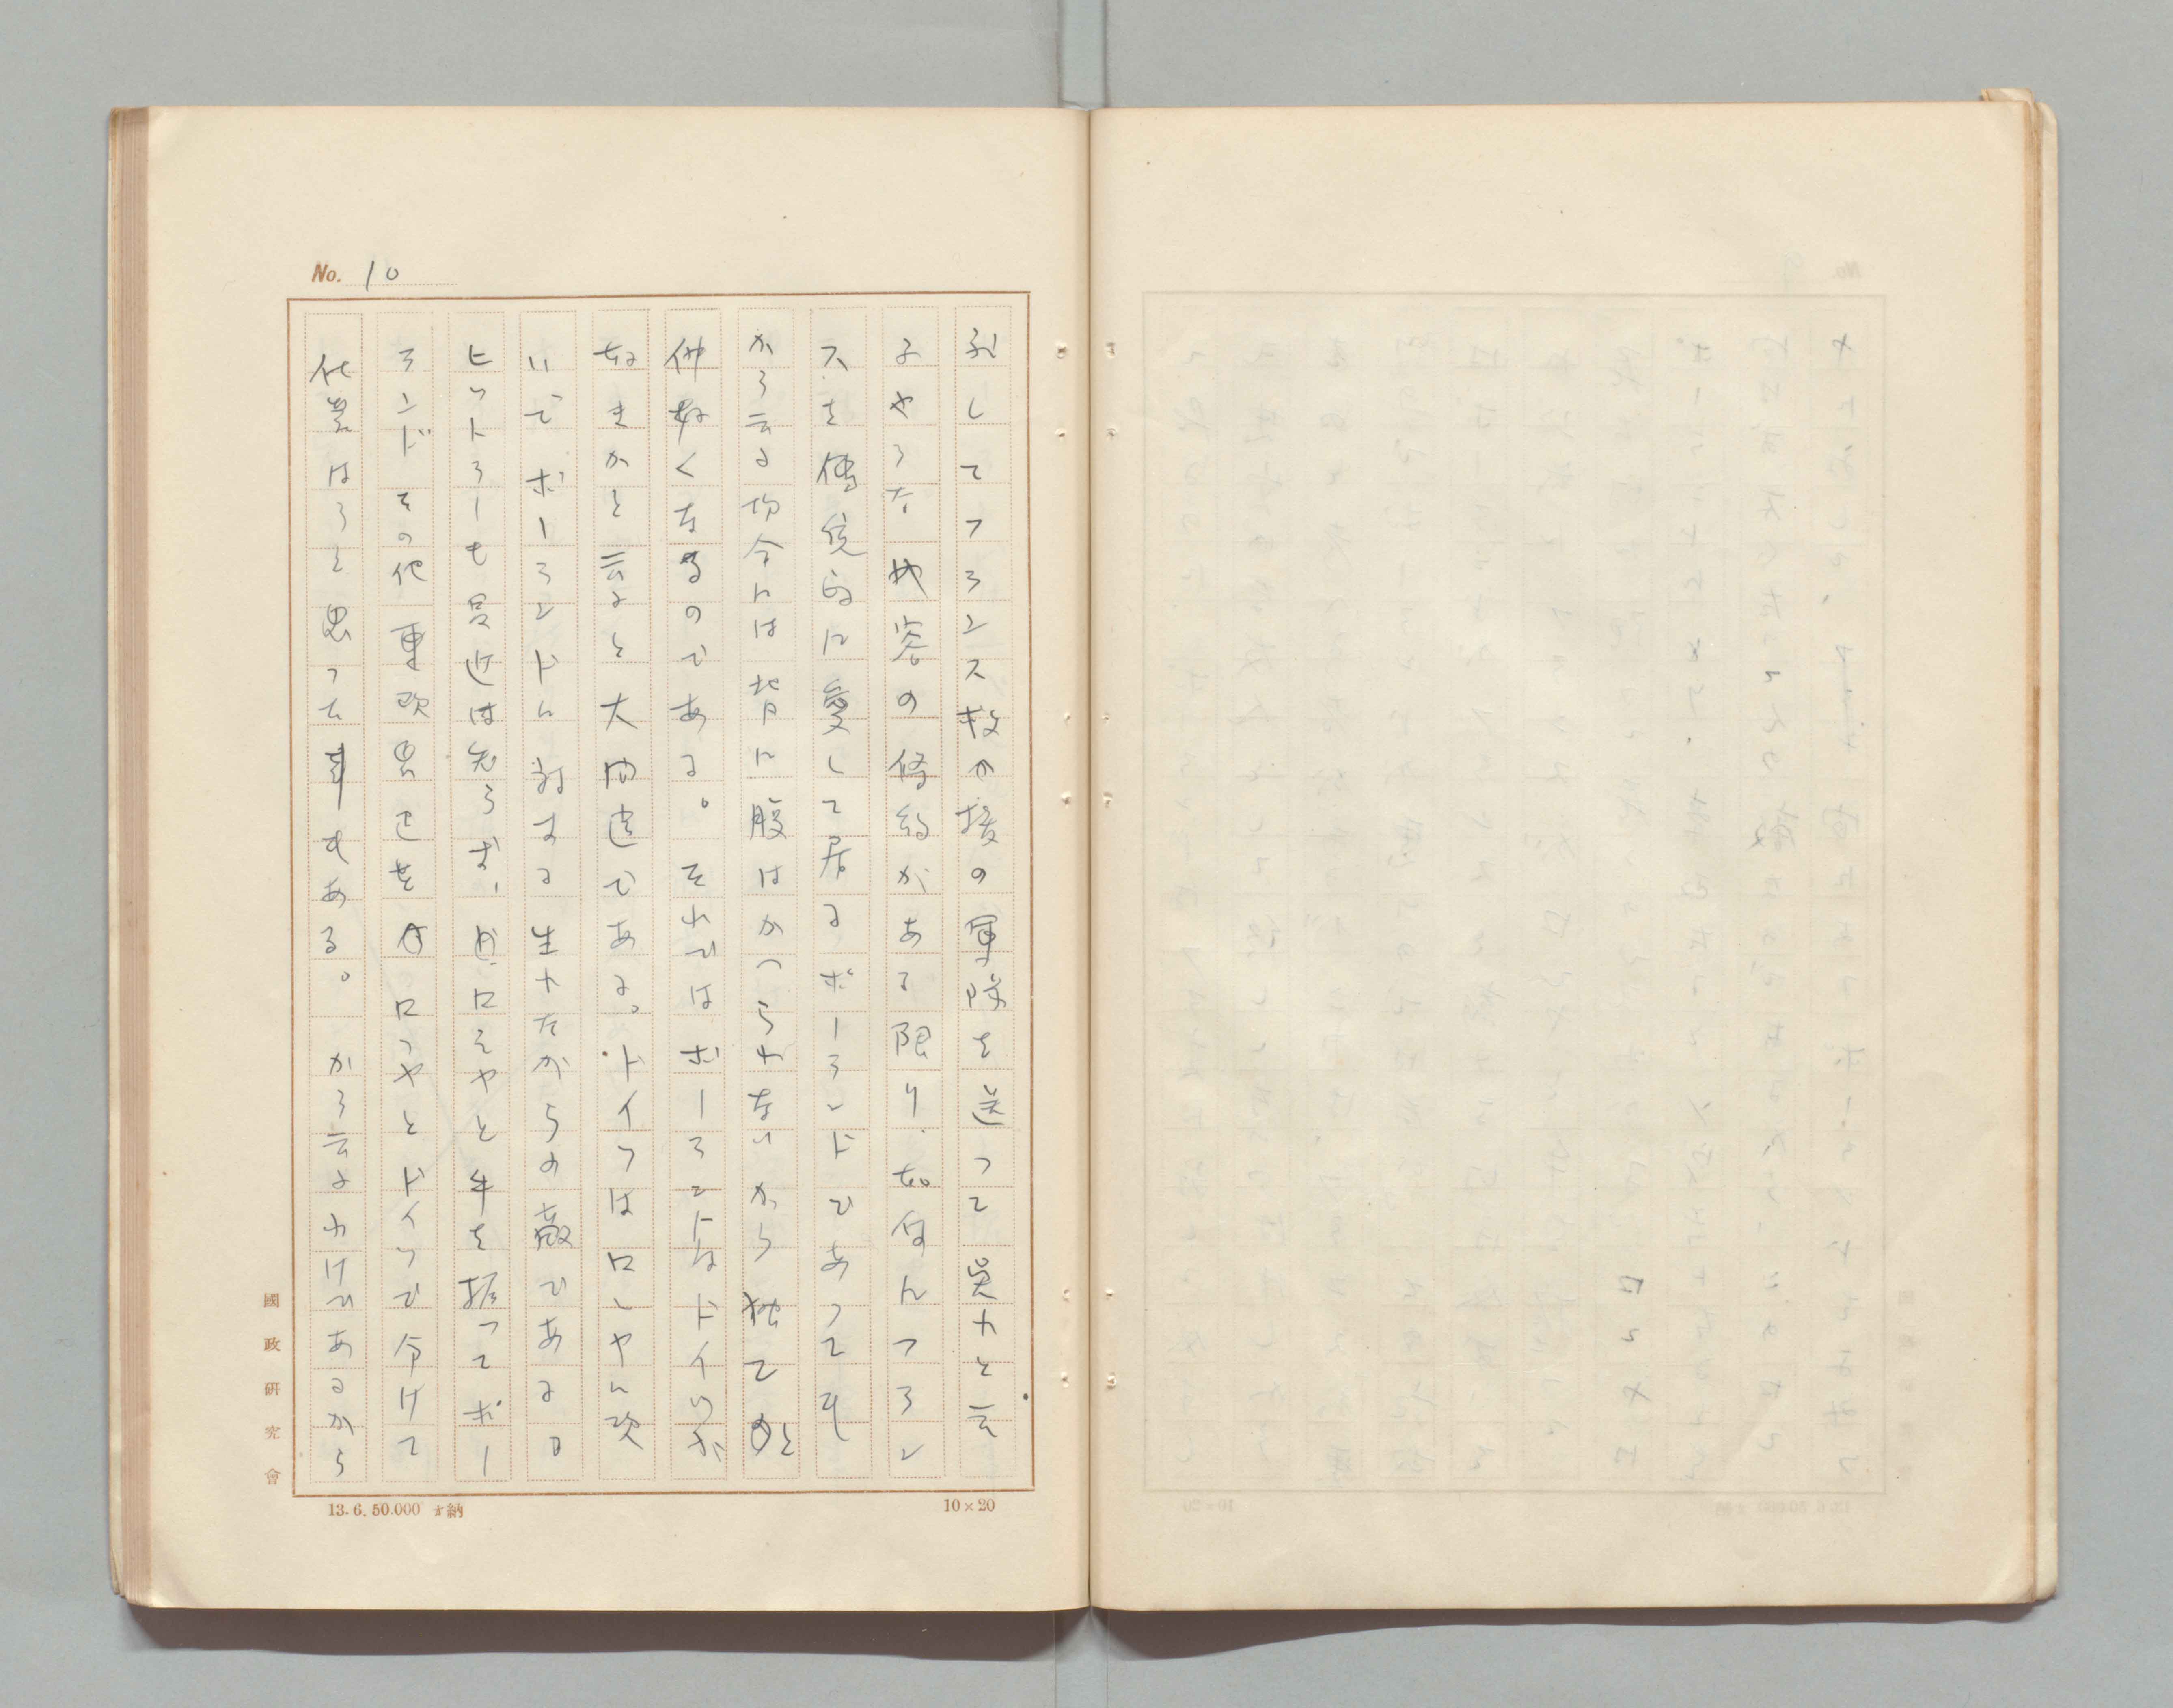 No. 10
してフランス救援の軍隊を送って呉れと云
ふやうな内容の條約がある限り、如何にフラン
スを傳統的に愛して居るポーランドであっても
かう云ふ場合には背に腹はかへられないから
仲好くなるのである。それではポーランドはドイツが
好きかと云ふと大間違である。ドイツはロシヤに次
いでポーランドに対する生れながらの敵である。
ヒットラーも最近は知らず、ロシヤと手を握ってポー
ランドその他東欧 をロシヤとドイツで分けて
はうと思った事もある。かう云ふわけであるから
國政研究會
13.6.50.000 納
10×20